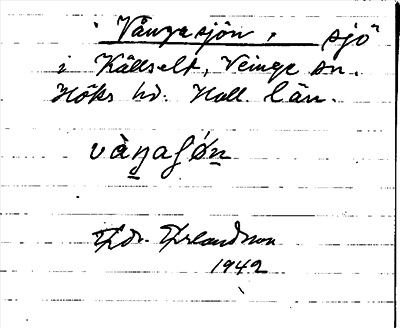 Vångasjön, sjö
i Källselt, Veinge sn.
Höks hd. Hall. län.
vàŋaʃǿn
Edv. Erlandsson
1942